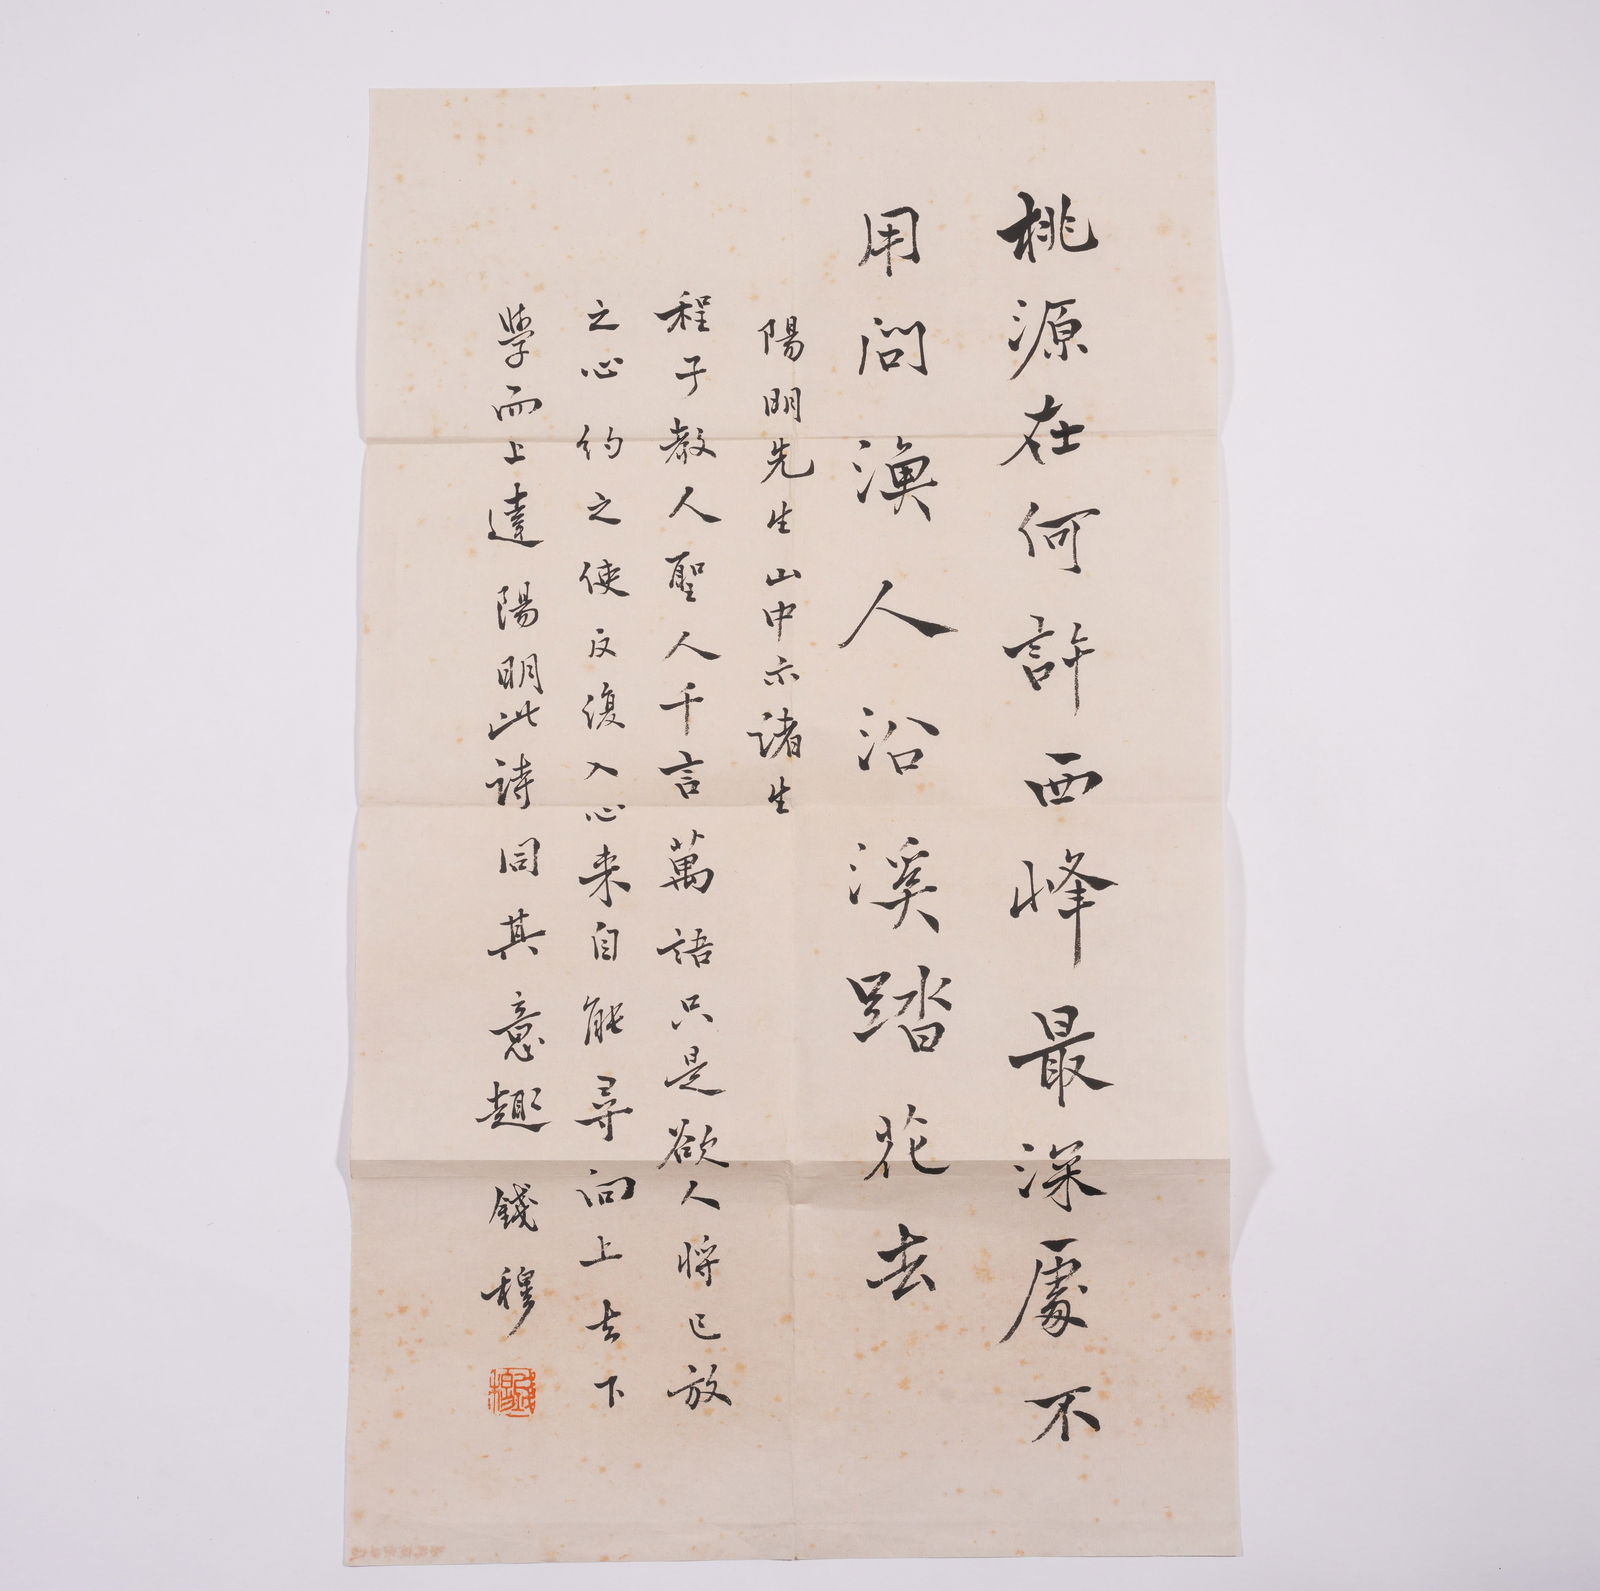 桃源在何許西峰最深處不
用問漁人沿溪踏花去
陽明先生山中示諸生
程子教人聖人千言萬語只是欲人將已放
之心約之使反復入心來自能尋向上去下
學而上達陽明此詩同其意趣錢穆